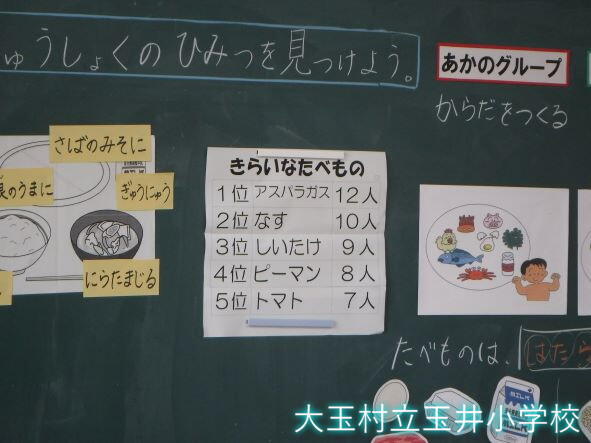 ゅうしょくのひみつを見つけよう。
あかのグループ
からだをつくる
さばのみそに
のうまに
ぎゅうにゅう
にらたまじる
きらいなたべもの
1位 アスパラガス 12人
2位 なす 10人
3位 しいたけ 9人
4位 ピーマン 8人
5位 トマト 7人
たべものは、はたら
大玉村立玉井小学校